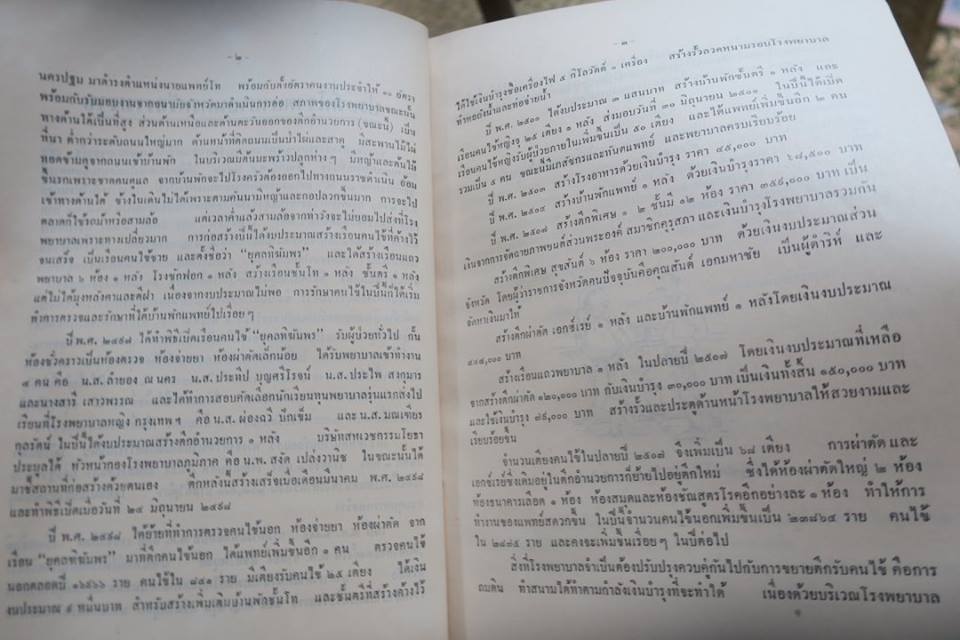 ๒
นครปฐม มาดำรงตำแหน่งนายแพทย์โท พร้อมกับตั้งอัตราคนงานประจำให้ ๑๐ อัตรา
พร้อมกับรับมอบงานจากอนามัยจังหวัดมาดำเนินการต่อ สภาพของโรงพยาบาลขณะนั้น
ทางด้านใต้เป็นที่สูง ส่วนด้านเหนือและด้านตะวันออกของตึกอำนวยการ (ขณะนี้) เป็น
ที่นา ต่ำกว่าระดับถนนใหญ่มาก ด้านหน้าที่ติดถนนเป็นป่าไผ่และสาคู มีสะพานไม้ไผ่
ทอดข้ามคูจากถนนเข้าบ้านพัก ในบริเวณมีต้นมะพร้าวปลูกห่าง ๆ มีหญ้าและต้นไม้
ขึ้นรกเพราะขาดคนดูแล จากบ้านพักจะไปโรงครัวต้องออกไปทางถนนราชดำเนิน อ้อม
เข้าทางด้านใต้ ข้างในเดินไม่ได้เพราะตามคันนามีหญ้าและกอปลวกขึ้นมาก การจะไป
ตลาดก็ใช้รถม้าหรือสามล้อ แต่เวลาค่ำแล้วสามล้อจากท่าวังจะไม่ยอมไปส่งที่โรง
พยาบาลเพราะทางเปลี่ยวมาก การก่อสร้างปีนี้ได้งบประมาณสร้างเรือนคนไข้ที่ค้างไว้
จนเสร็จ เป็นเรือนคนไข้ชาย และตั้งชื่อว่า "ยุคลทิฆัมพร" และได้สร้างเรือนแถว
พยาบาล ๖ ห้อง ๑ หลัง โรงซักฟอก ๑ หลัง สร้างเรือนชั้นโท ๑ หลัง ชั้นตรี ๑ หลัง
แต่ไม่ได้มุงหลังคาและตีฝา เนื่องจากงบประมาณไม่พอ การรักษาคนไข้ในปีนี้ก็ได้เริ่ม
ทำการตรวจและรักษาที่ใต้บ้านพักแพทย์ไปเรื่อย ๆ
ปี พ.ศ. ๒๔๙๗ ได้ทำพิธีเปิดเรือนคนไข้ "ยุคลทิฆัมพร" รับผู้ป่วยทั่วไป กั้น
ห้องชั่วคราวเป็นห้องตรวจ ห้องจ่ายยา ห้องผ่าตัดเล็กน้อย ได้รับพยาบาลเข้าทำงาน
๔ คน คือ น.ส. ลำยอง ณ นคร น.ส. ประทีป บุญศรีโรจน์ น.ส. ประไพ สงกุมาร
และนางสารี เสาวพรรณ และได้ทำการสอบคัดเลือกนักเรียนทุนพยาบาลรุ่นแรกส่งไป
เรียนที่โรงพยาบาลหญิง กรุงเทพ ฯ คือ น.ส. ผ่องฉวี ปักเข็ม และ น.ส. มณเฑียร
กุลรัตน์ ในปีนี้ได้งบประมาณสร้างตึกอำนวยการ ๑ หลัง บริษัทสหเวชกรรมโยธา
ประมูลได้ หัวหน้ากองโรงพยาบาลภูมิภาค คือ น.พ. สงัด เปล่งวานิช ในขณะนั้นได้
มาชี้สถานที่ก่อสร้างด้วยตนเอง ตึกหลังนี้สร้างเสร็จเมื่อเดือนมีนาคม พ.ศ. ๒๔๙๘
และทำพิธีเปิดเมื่อวันที่ ๒๔ มิถุนายน ๒๔๙๘
ปี พ.ศ. ๒๔๙๘ ได้ย้ายที่ทำการตรวจคนไข้นอก ห้องจ่ายยา ห้องผ่าตัด จาก
เรือน "ยุคลทิฆัมพร" มาที่ตึกคนไข้นอก ได้แพทย์เพิ่มขึ้นอีก ๑ คน ตรวจคนไข้
นอกตลอดปี ราย คนไข้ใน ๘๔๑ ราย มีเตียงรับคนไข้ ๒๕ เตียง ได้เงิน
งบประมาณ ๙ หมื่นบาท สำหรับสร้างเพิ่มเติมบ้านพักชั้นโท และชั้นตรีที่สร้างค้างไว้
๓
ได้ใช้เงินบำรุงซื้อเครื่องไฟ ๕ กิโลวัตต์ ๑ เครื่อง สร้างรั้วลวดหนามรอบโรงพยาบาล
ทำหอถังน้ำและท่อจ่ายน้ำ
ปี พ.ศ. ๒๕๐๐ ได้งบประมาณ ๓ แสนบาท สร้างบ้านพักชั้นตรี ๑ หลัง และ
เรือนคนไข้หญิงจุ ๒๕ เตียง ๑ หลัง ส่งมอบวันที่ ๓๐ มิถุนายน ๒๕๐๐ ในปีนี้ได้เปิด
เรือนคนไข้หญิงรับผู้ป่วยภายในเพิ่มขึ้นเป็น ๕๐ เตียง และได้แพทย์เพิ่มขึ้นอีก ๒ คน
รวมเป็น ๕ คน ขณะนั้นมีเภสัชกรและทันตแพทย์ และพยาบาลครบเรียบร้อย
ปี พ.ศ. ๒๕๐๓ สร้างโรงอาหารด้วยเงินบำรุง ราคา ๔๕,๐๐๐ บาท
ปี พ.ศ. ๒๕๐๔ สร้างบ้านพักแพทย์ ๑ หลัง ด้วยเงินบำรุงราคา ๖๘,๕๐๐ บาท
ปี พ.ศ. ๒๕๐๗ สร้างตึกพิเศษ ๑ ๒ ชั้นมี ๑๒ ห้อง ราคา ๓๕๕,๐๐๐ บาท เป็น
เงินจากการจัดฉายภาพยนต์ส่วนพระองค์ สมาชิกคุรุสภา และเงินบำรุงโรงพยาบาลรวมกัน
สร้างตึกพิเศษ สุขสันต์ ๖ ห้อง ราคา ๒๐๐,๐๐๐ บาท ด้วยเงินงบประมาณส่วน
จังหวัด โดยผู้ว่าราชการจังหวัดคนปัจจุบันคือคุณสันต์ เอกมหาชัย เป็นผู้ดำริห์ และ
จัดหาเงินมาให้
สร้างตึกผ่าตัด เอกซ์เรย์ ๑ หลัง และบ้านพักแพทย์ ๑ หลังโดยเงินงบประมาณ
บาท
สร้างเรือนแถวพยาบาล ๑ หลัง ในปลายปี ๒๕๐๗ โดยเงินงบประมาณที่เหลือ
จากสร้างตึกผ่าตัด ๑๒๐,๐๐๐ บาท กับเงินบำรุง ๓๐,๐๐๐ บาท เป็นเงินทั้งสิ้น ๑๕๐,๐๐๐ บาท
และใช้เงินบำรุง ๗๕,๐๐๐ บาท สร้างรั้วและประตูด้านหน้าโรงพยาบาลให้สวยงามและ
เรียบร้อยขึ้น
จำนวนเตียงคนไข้ในปลายปี ๒๕๐๗ จึงเพิ่มเป็น ๖๘ เตียง การผ่าตัด และ
เอกซ์เรย์ซึ่งเดิมอยู่ในตึกอำนวยการก็ย้ายไปอยู่ตึกใหม่ ซึ่งได้ห้องผ่าตัดใหญ่ ๒ ห้อง
ห้องธนาคารเลือด ๑ ห้อง ห้องสมุดและห้องชัณสูตรโรคอีกอย่างละ ๑ ห้อง ทำให้การ
ทำงานของแพทย์สดวกขึ้น ในปีนี้จำนวนคนไข้นอกเพิ่มขึ้นเป็น ๒๓๘๖๔ ราย คนไข้
ใน ๒๔๗๕ ราย และคงจะเพิ่มขึ้นเรื่อย ๆ ในปีต่อไป
สิ่งที่โรงพยาบาลจำเป็นต้องปรับปรุงควบคู่กันไปกับการขยายตึกรับคนไข้ คือการ
ถมดิน ทำสนามได้ทำตามกำลังเงินบำรุงที่จะทำได้ เนื่องด้วยบริเวณโรงพยาบาล